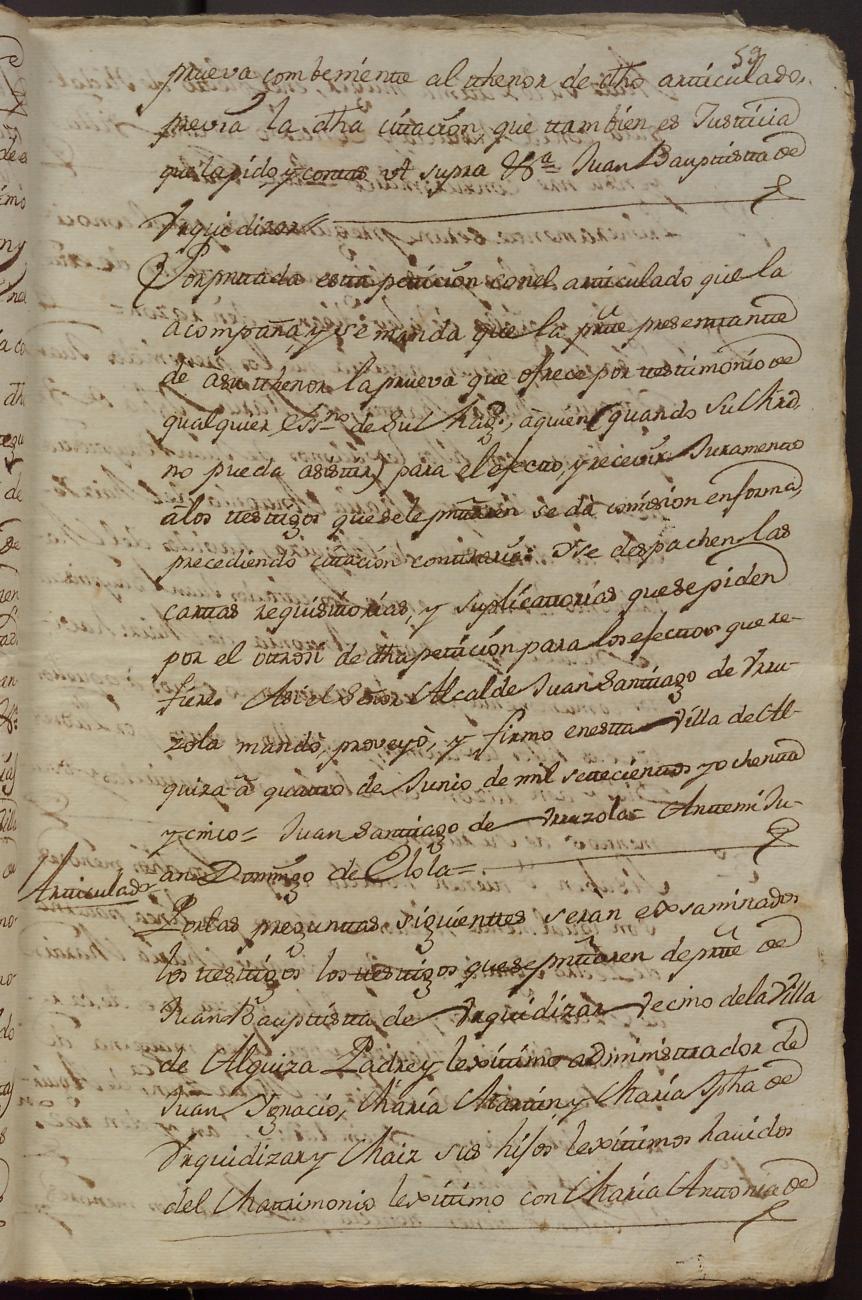 59
prueva combeniente al thenor de dho articulado,
previa la dha citacion, que tambien es Justicia
que la pido, y costas vt supra &ª Juan Bauptista de
Vrquidizar=
Por pntada esta peticion con el articulado que la
acompaña, y se manda que la pte presentante
de a su thenor la prueva que ofrece por testimonio de
qualquier Essno de Su Magd, a quien (quando Su Mrd,
no pueda asistir) para el efecto, y recevir Juramento
a los testigos que se le pntaren se da comision en forma,
precediendo citacion contraria: Y se despachen las
cartas requisitorias, y suplicatorias que se piden
por el otrosi de dha peticion para los efectos que re-
fiere. Asi el Señor Alcalde Juan Santiago de Vrru-
zola mandò, proveyò, y firmo en esta Villa de Al-
quiza à quatro de Junio de mil setecientos y ochenta
y cinco= Juan Santiago de Vrruzola= Antemi Ju-
an Domingo de Elola=
Articulado
Por las preguntas siguientes seran exsaminados
los testigos los testigos que se pntaren de pte de
Juan Bauptista de Vrquidizar Vecino de la Villa
de Alquiza Padre y lexitimo administrador de
Juan Ygnacio, Maria Martin y Maria Jpha de
Vrquidizar y Maiz sus hijos lexitimos havidos
del Matrimonio lexitimo con Maria Antonia de